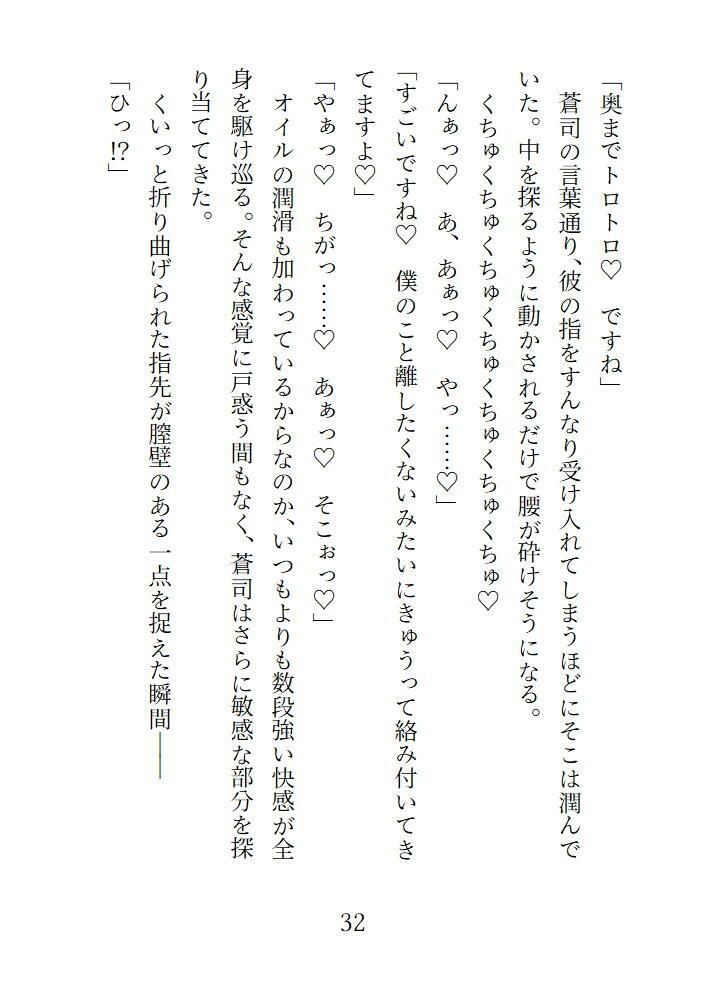 「奥までトロトロ♡　ですね」
　蒼司の言葉通り、彼の指をすんなり受け入れてしまうほどにそこは潤んで
いた。中を探るように動かされるだけで腰が砕けそうになる。
　くちゅくちゅくちゅくちゅくちゅくちゅくちゅ♡
「んぁっ♡　あ、あぁっ♡　やっ……♡」
「すごいですね♡　僕のこと離したくないみたいにきゅうって絡み付いてき
てますよ♡」
「やぁっ♡　ちがっ……♡　あぁっ♡　そこぉっ♡」
　オイルの潤滑も加わっているからなのか、いつもよりも数段強い快感が全
身を駆け巡る。そんな感覚に戸惑う間もなく、蒼司はさらに敏感な部分を探
り当ててきた。
　くいっと折り曲げられた指先が膣壁のある一点を捉えた瞬間――
「ひっ!?」
32